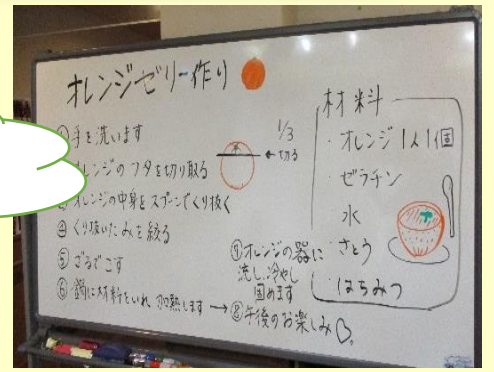 オレンジゼリー作り
手を洗います
オレンジのフタを切り取る
オレンジの中身をスプーンでくり抜く
④くり抜いたみを絞る
⑤ざるでこす
⑥鍋に材料をいれ加熱します→
1/3
←切る
⑦オレンジの器に
流し、冷やし
固めます
⑧午後のお楽しみ♡。
材料
・オレンジ1人1個
・ゼラチン
・水
・さとう
・はちみつ